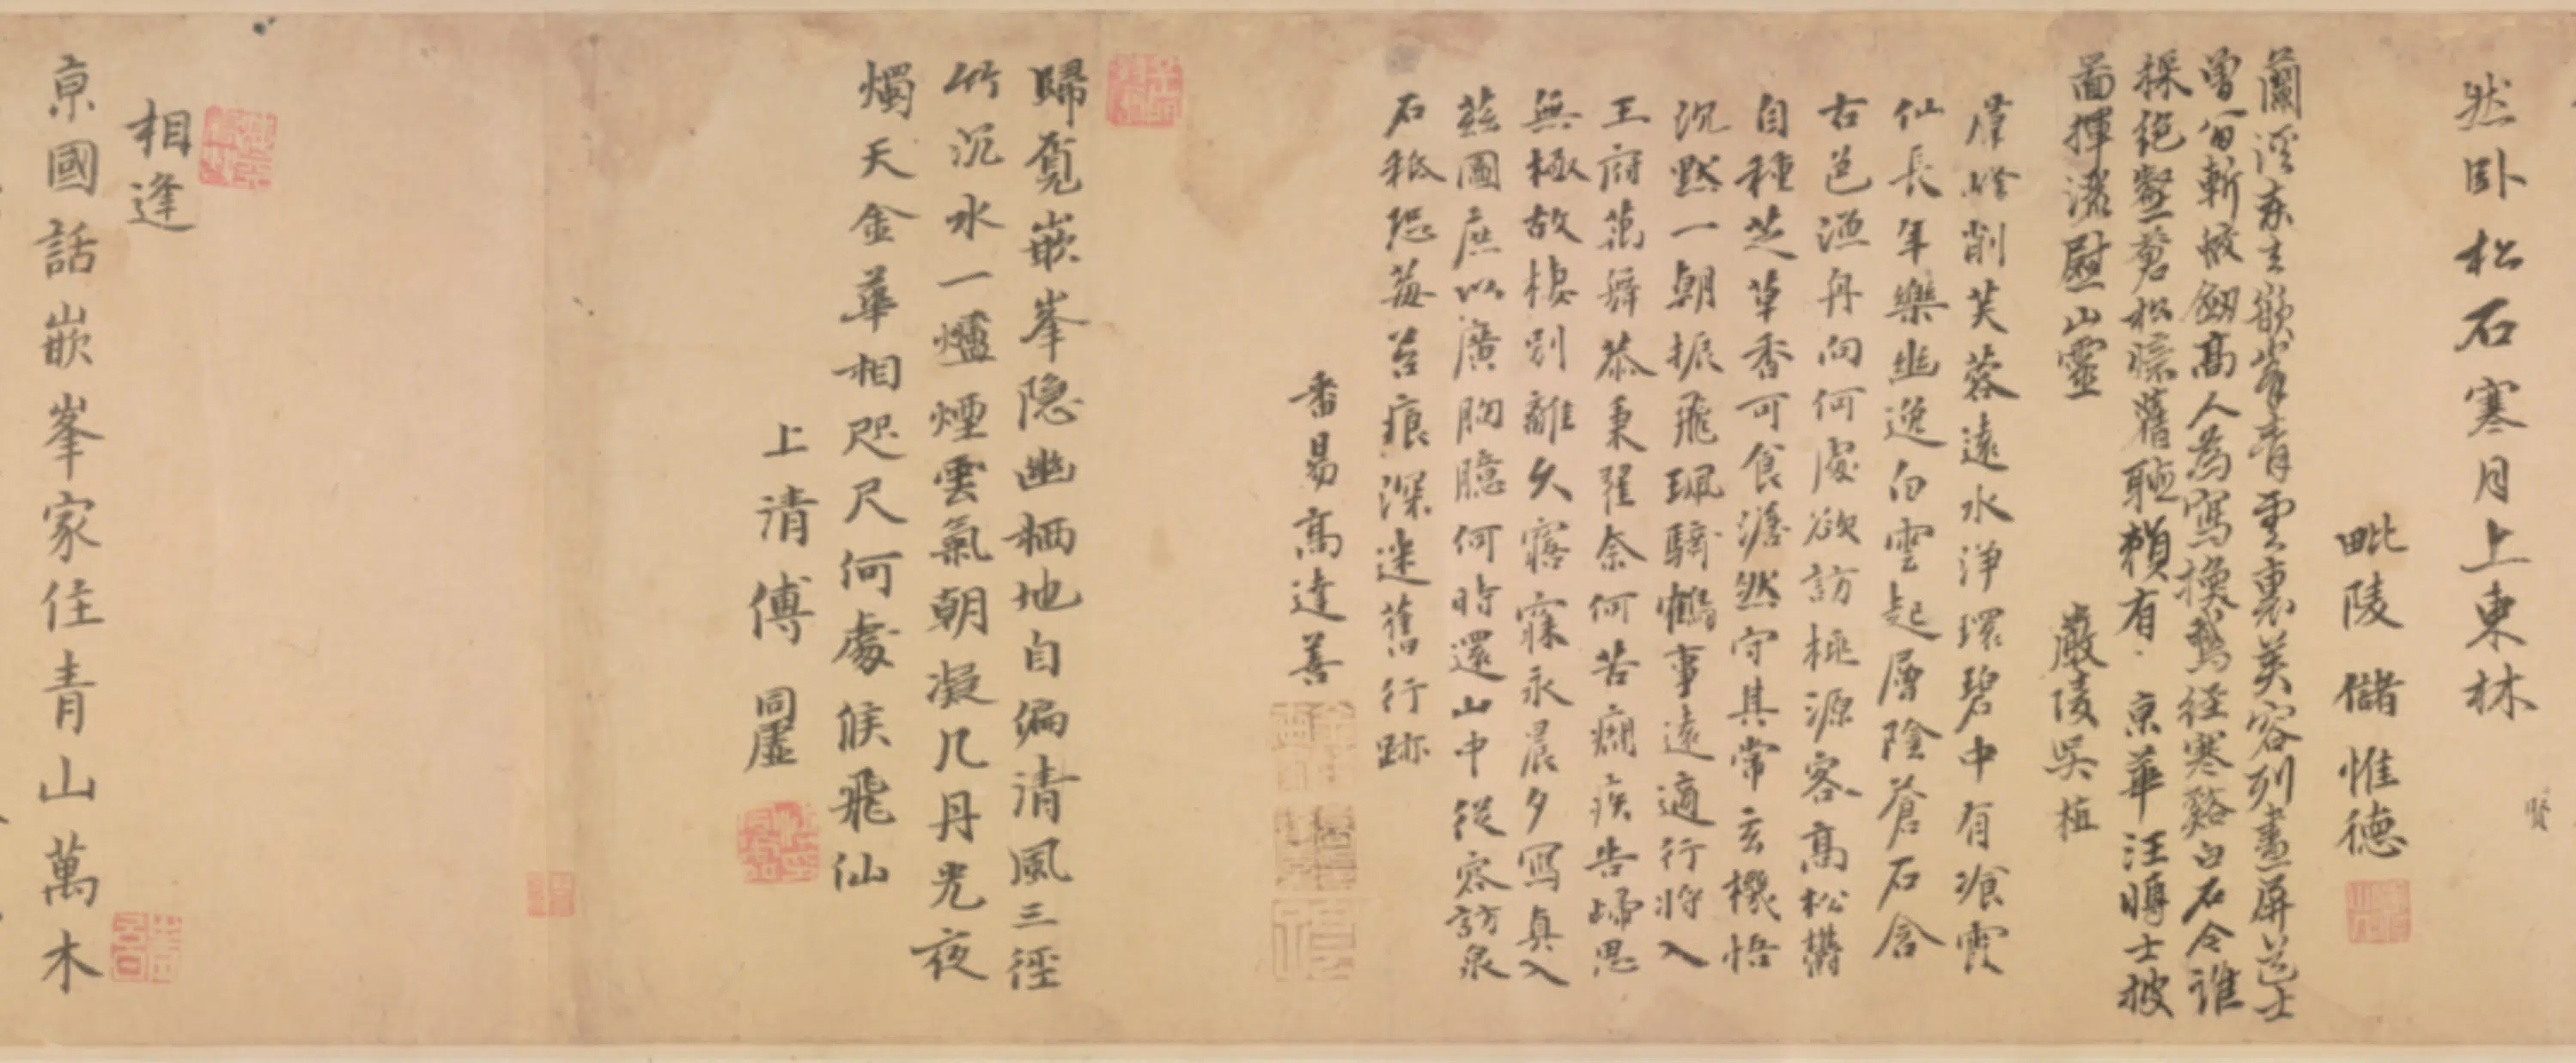 然卧松石寒月上東林
毗陵儲惟德
蘭溪東去嶔峯青雲裏芙容列畫屏道士
曽分斬蛟劒高人為寫換鵞經寒谿白石令誰
採絶壑蒼松除舊聴頼有京華汪博士披
啚揮灑慰山靈
嚴陵吳植
崖峰削芙蓉遠水浄環碧中有飡霞
仙長年樂幽逸白雲起層陰蒼石含
古色漁舟向何處欲訪桃源客髙松欝
自種芝草香可食澹然守其常玄機悟
沉黙一朝振飛珮驂鶴事遠適行将入
王府萬舜恭秉翟奈何苦痼疾告歸思
無極故棲別離久寤寐永晨夕寫真入
兹圖庶以廣胸臆何時還山中從容訪泉
石秪恐莓苔痕深迷舊行跡
番昜髙達善
歸蒐嶔峯隐幽栖地自偏清風三徑
竹沉水一爐煙雲氣朝凝几丹光夜
燭天金華相咫尺何處候飛仙
上清傅同虛
相逢
京國話嶔峯家住青山萬木